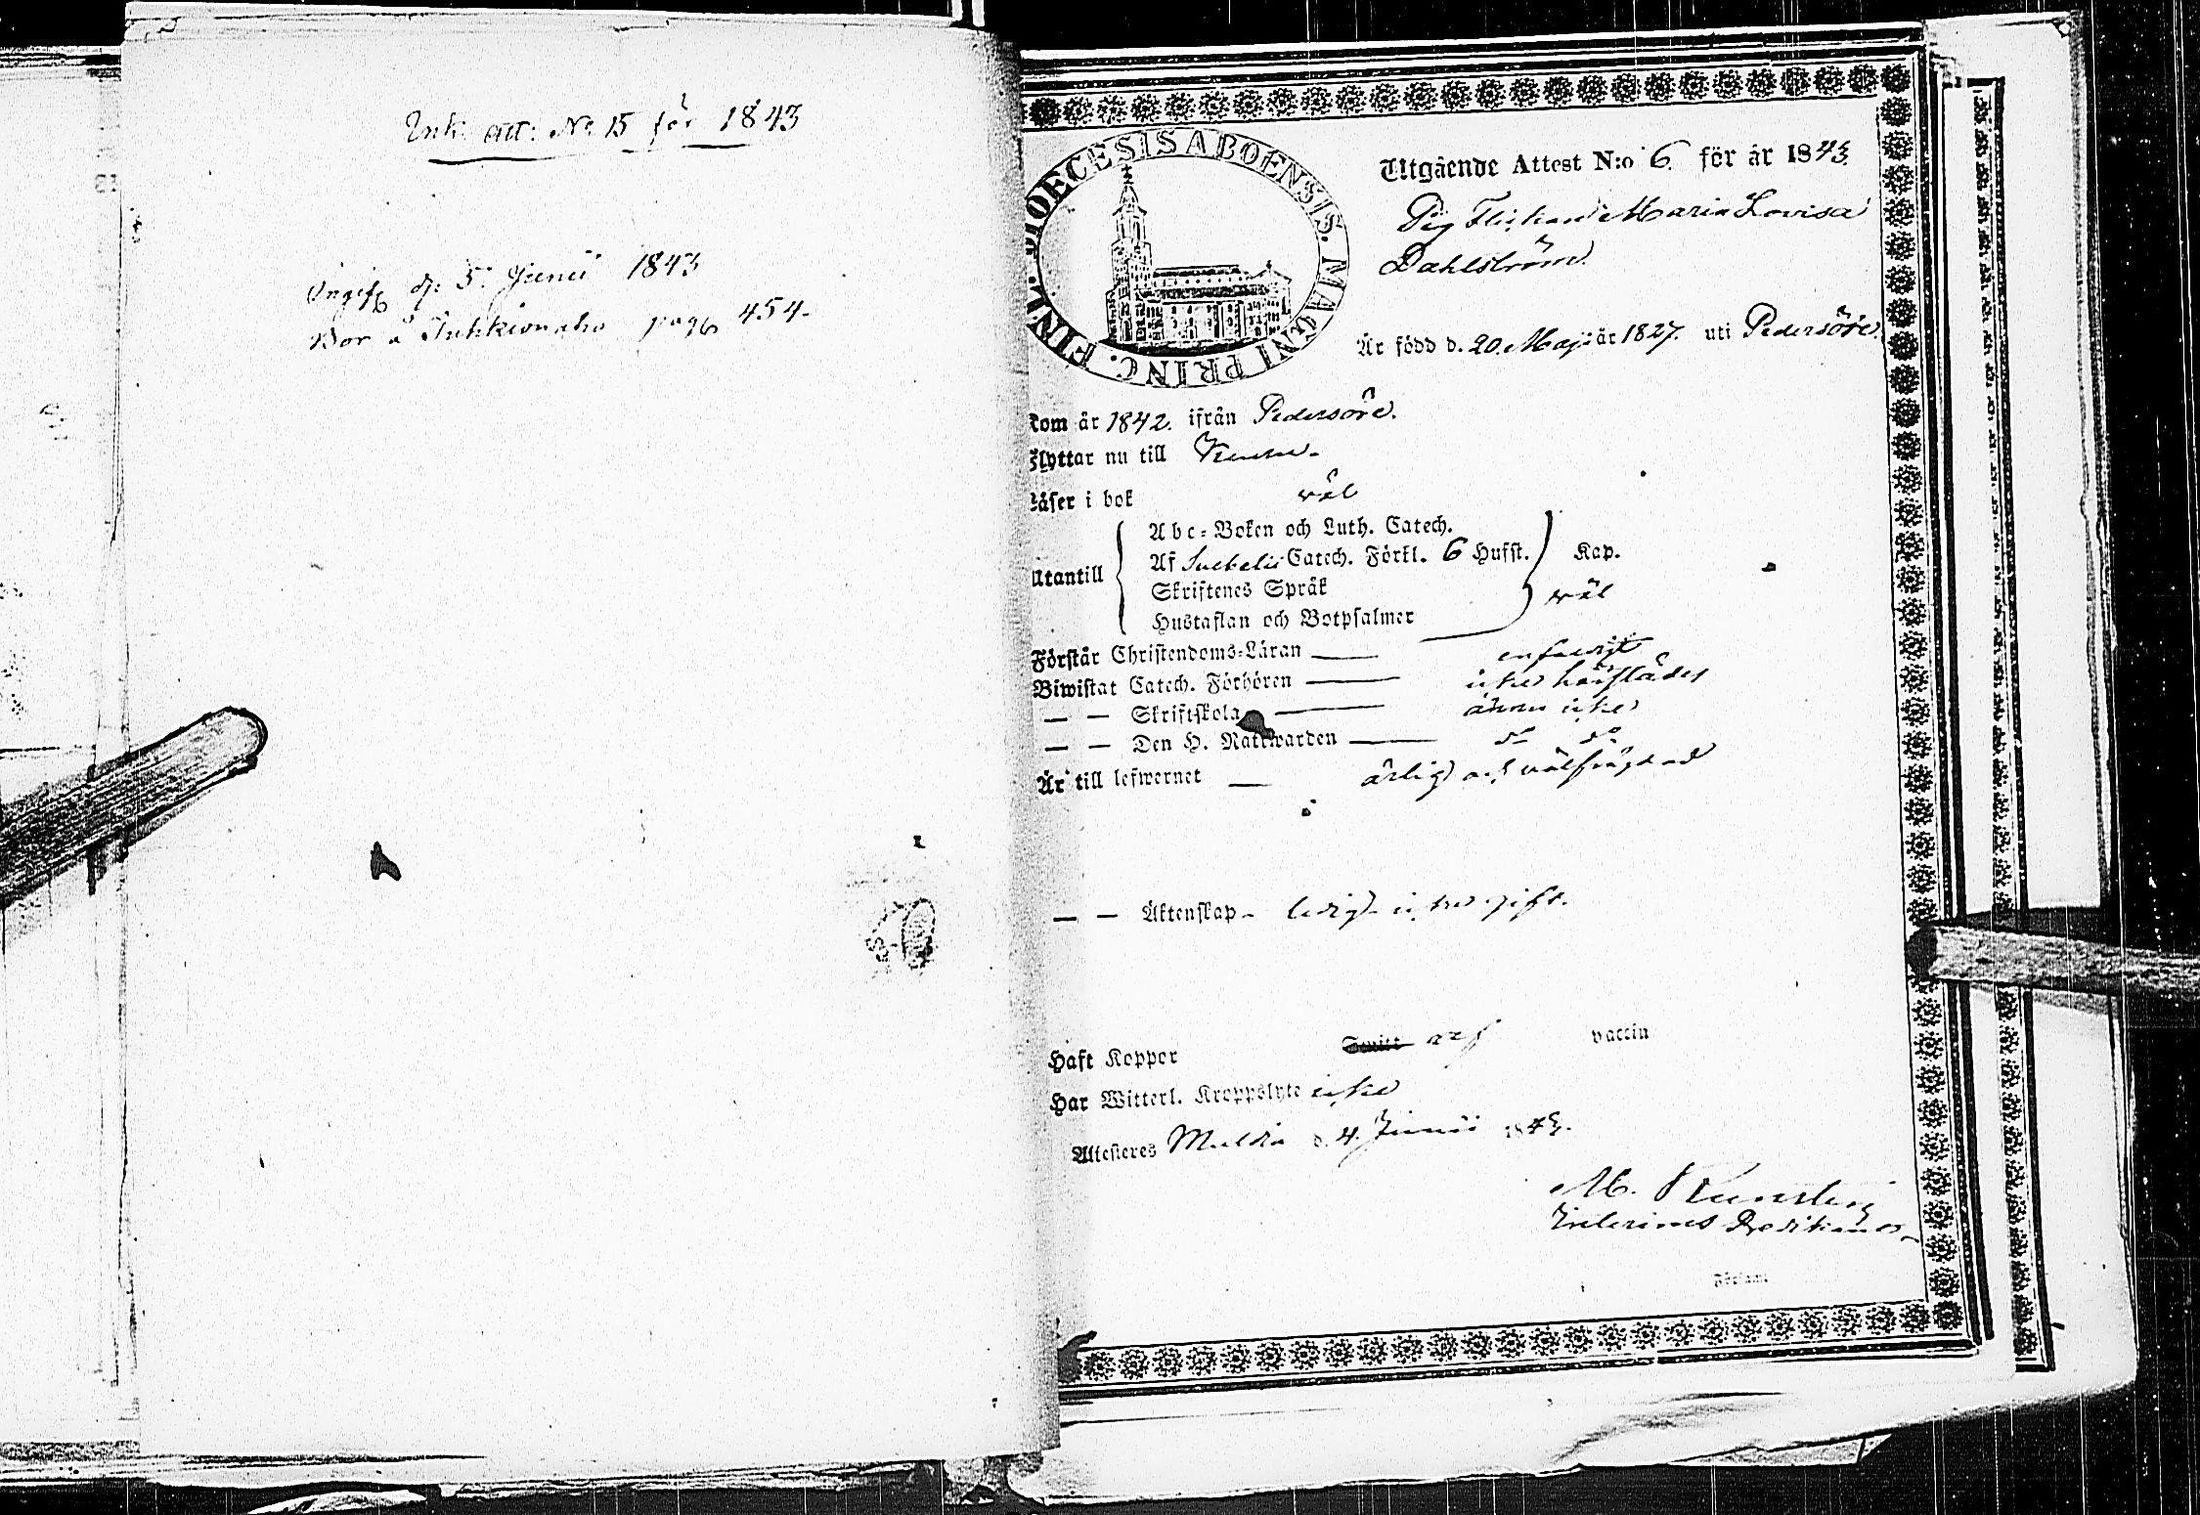 Ink. att: No 15 för 1843
Ingifv. d. 5. Junii 1843
Bor å Juhkionaho pag 454.
DIOECESIS ABOENSIS. MAGNI PRINC. FINL.
Utgående Attest N:o 6. för år 1843.
Pig Flickan Maria Lovisa
Dahlström.
Är född d. 20. Maji år 1827. uti Pedersöre.
Kom år 1842. ifrån Pedersöre.
Flyttar nu till
Läser i bok väl
Utantill
Abc-Boken och Luth. Catech.
Af Suebelii Catech. Förkl. 6 Hufst. Kap.
Skriftenes Språk väl
Hustaflan och Botpsalmer
Förstår Christendoms-Läran enfaldigt
Biwistat Catech. Förhören icke härstädes
— — Skriftskola ännu icke
— — Den H. Nattwarden do do
Är till lefwernet ärlig och välfrägdad
— — Äktenskap ledig icke gift.
Haft Koppor vaccin
Har Witterl. Kroppslyte icke
Attesteres Muldia d. 4. Junii 1843.
M.
Interims Predikant
Församl